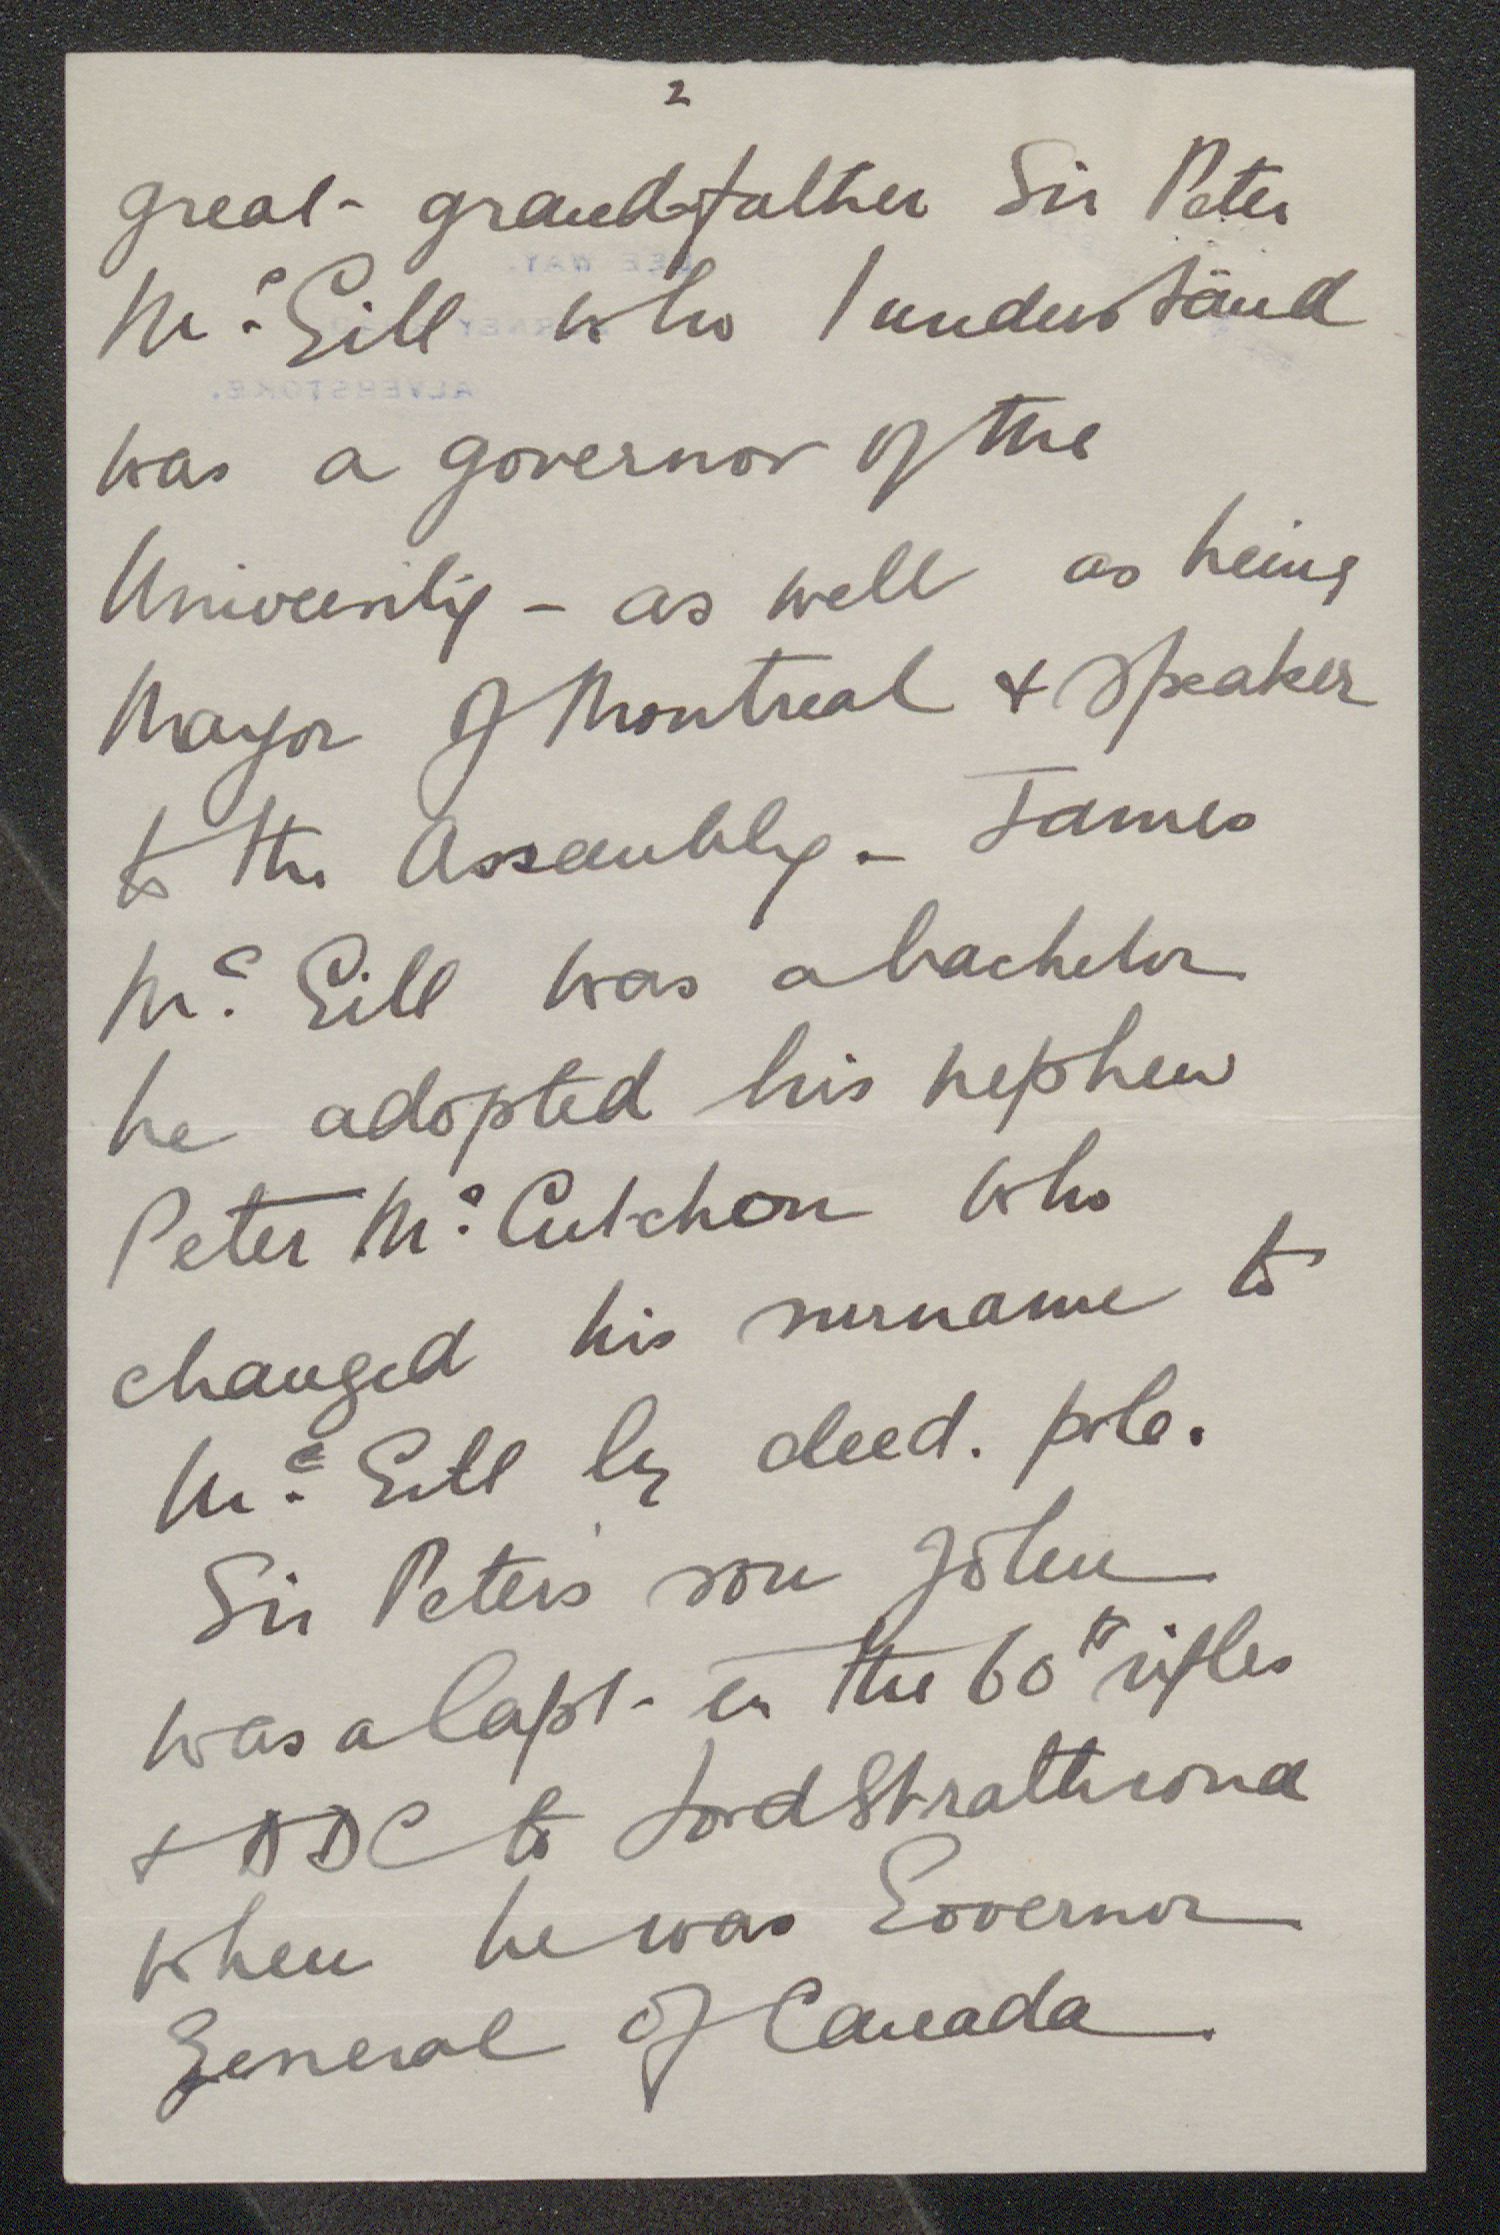 2
great-grandfather Sir Peter
McGill who I understand
was a governor of the
University - as well as being
Mayor of Montreal & Speaker
to the Assembly - James
McGill was a bachelor
he adopted his nephew
Peter McCutchon who
changed his surname to
McGill by deed. pole.
Sir Peter's son John
was a Capt - in the 60th rifles
& ADC to Lord Strathcona
when he was Governor
General of Canada.
WAY.
ALVERSTOKE.